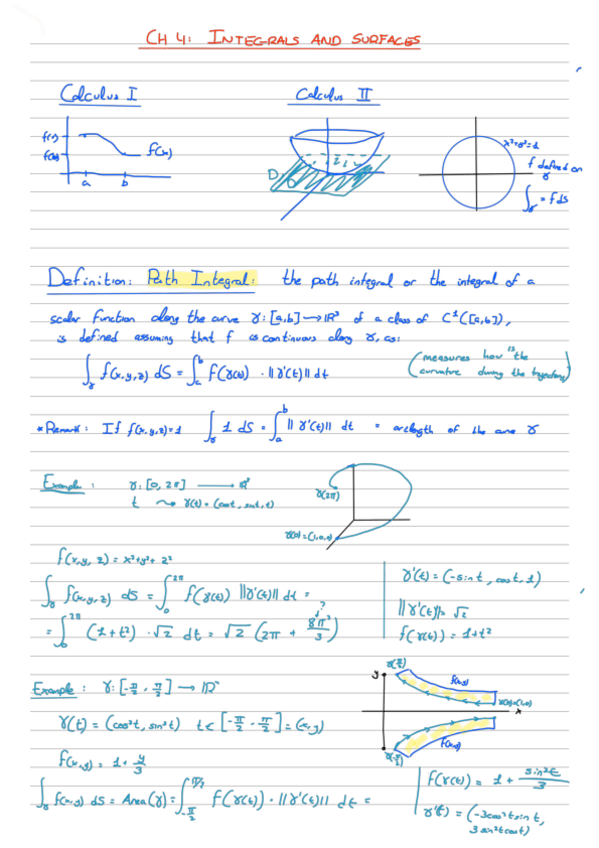 CH 4: INTEGRALS AND SURFACES
Calculus I
Calculus II
f(a)
f(b)
f(x)
a b
D
x²+y²=1
f defined on
γ
∫γ = f dS
Definition: Path Integral: the path integral or the integral of a
scalar function along the curve γ: [a,b] → ℝ³ of a class of C¹([a,b]),
is defined assuming that f is continuous along γ, as:
∫γ f(x,y,z) dS = ∫ₐᵇ f(γ(t)) · ||γ'(t)|| dt
(measures how is the
curvature during the trajectory)
* Remark: If f(x,y,z)=1 ∫γ 1 dS = ∫ₐᵇ ||γ'(t)|| dt = arclength of the curve γ
Example: γ: [0, 2π] →
t ⇝ γ(t) = (cost, sint, t)
γ(2π)
γ(0) = (1,0,0)
f(x,y,z) = x²+y²+z²
∫γ f(x,y,z) dS = ∫₀²π f(γ(t)) ||γ'(t)|| dt =
= ∫₀²π (1+t²) · √2 dt = √2 (2π + 8π³/3)
?
γ'(t) = (-sint, cost, 1)
||γ'(t)|| = √2
f(γ(t)) = 1+t²
Example: γ: [-π/2, π/2] → ℝ²
γ(t) = (cos³t, sin³t) t ∈ [-π/2, π/2] = (x,y)
f(x,y) = 1 + y/3
∫γ f(x,y) dS = Area(γ) = ∫ f(γ(t)) · ||γ'(t)|| dt =
y
x
γ(π/2)
f(x,y)
γ(0)=(1,0)
f(x,y)
γ(-π/2)
f(γ(t)) = 1 + sin³t/3
γ'(t) = (-3cos²t sint,
3 sin²t cost)